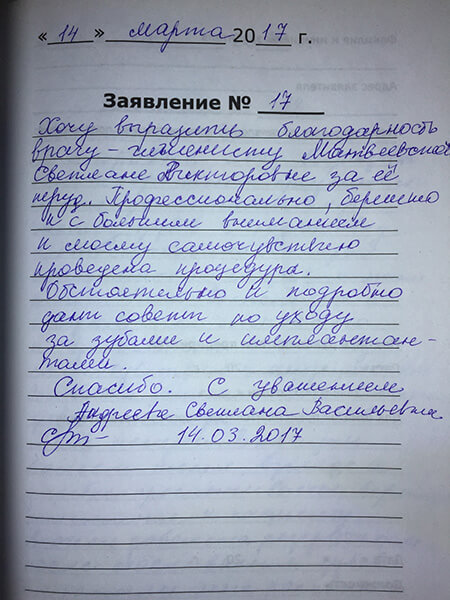 « 14 » марта 2017 г.
Заявление № 17
Хочу выразить благодарность
врачу - гигиенисту Матвеевской
Светлане Викторовне за её
труд. Профессионально, бережно
и с большим вниманием
к моему самочувствию
проведена процедура.
Обстоятельно и подробно
даны советы по уходу
за зубами и имплантан-
тами.
Спасибо. С уважением
Андреева Светлана Васильевна
14.03.2017